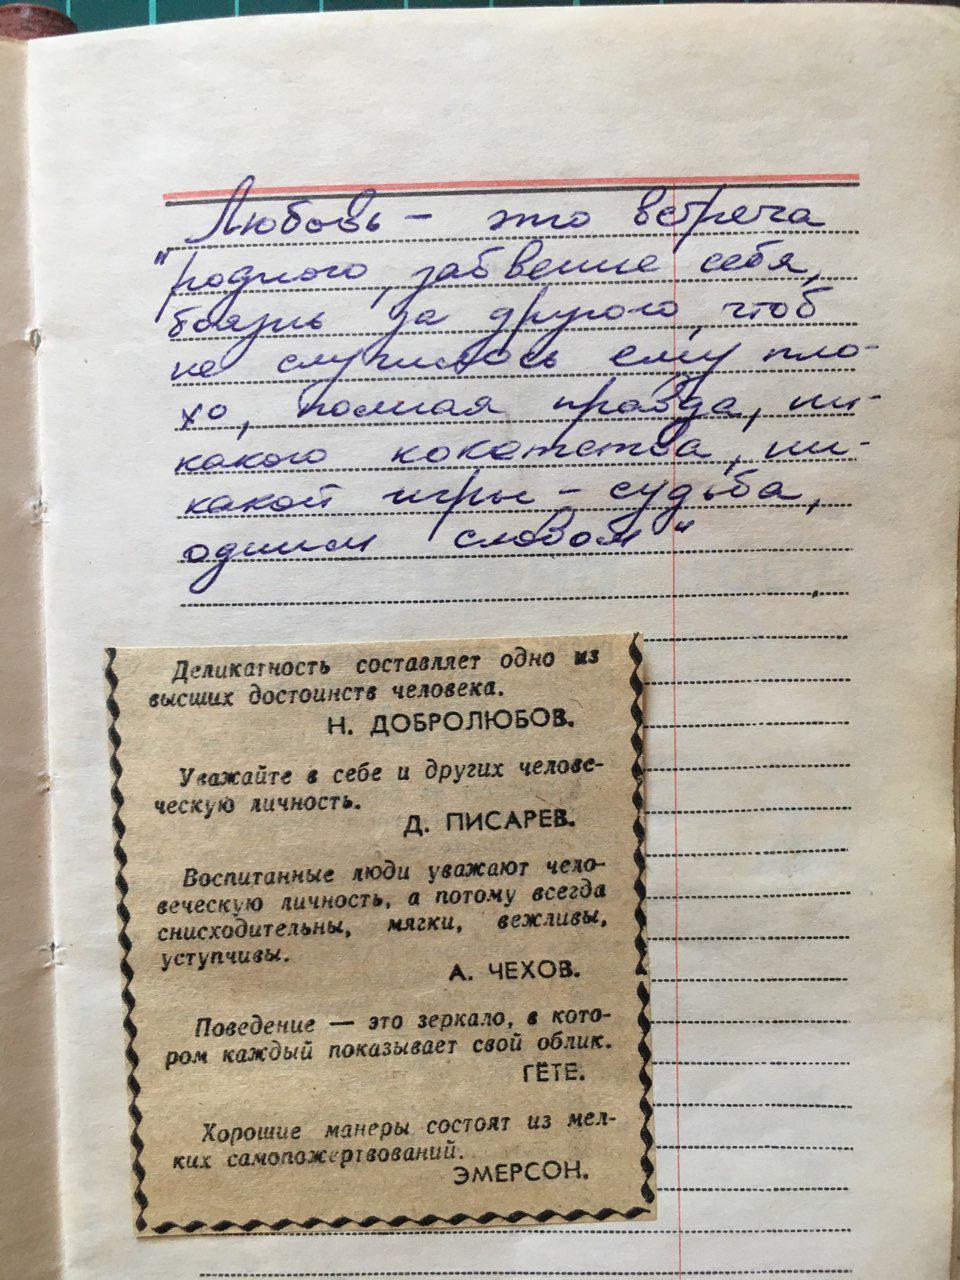 Любовь – это встреча
"родного, забвение себя,
боязнь за другого, чтоб
не случилось ему пло-
хо, полная правда, ни-
какого кокетства, ни-
какой игры – судьба,
одним словом"
Деликатность составляет одно из
высших достоинств человека.
Н. ДОБРОЛЮБОВ.
Уважайте в себе и других челове-
ческую личность.
Д. ПИСАРЕВ.
Воспитанные люди уважают чело-
веческую личность, а потому всегда
снисходительны, мягки, вежливы,
уступчивы.
А. ЧЕХОВ.
Поведение — это зеркало, в кото-
ром каждый показывает свой облик.
ГЁТЕ.
Хорошие манеры состоят из мел-
ких самопожертвований.
ЭМЕРСОН.